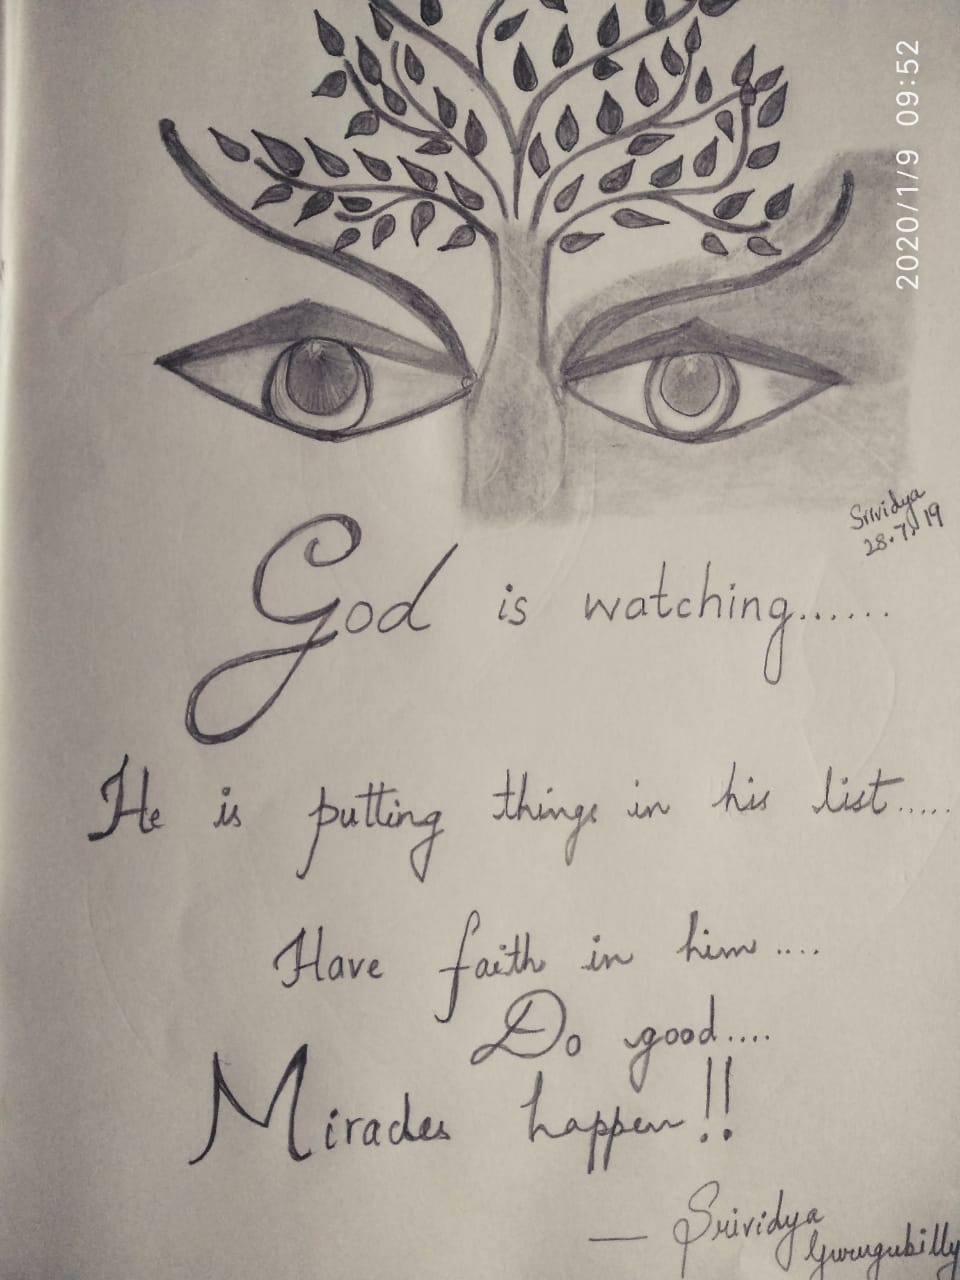 2020/1/9 09:52
Srividya
28.7.19
God is watching......
He is putting things in his list.....
Have faith in him....
Do good....
Miracles happen!!
— Srividya
Gurugubilly